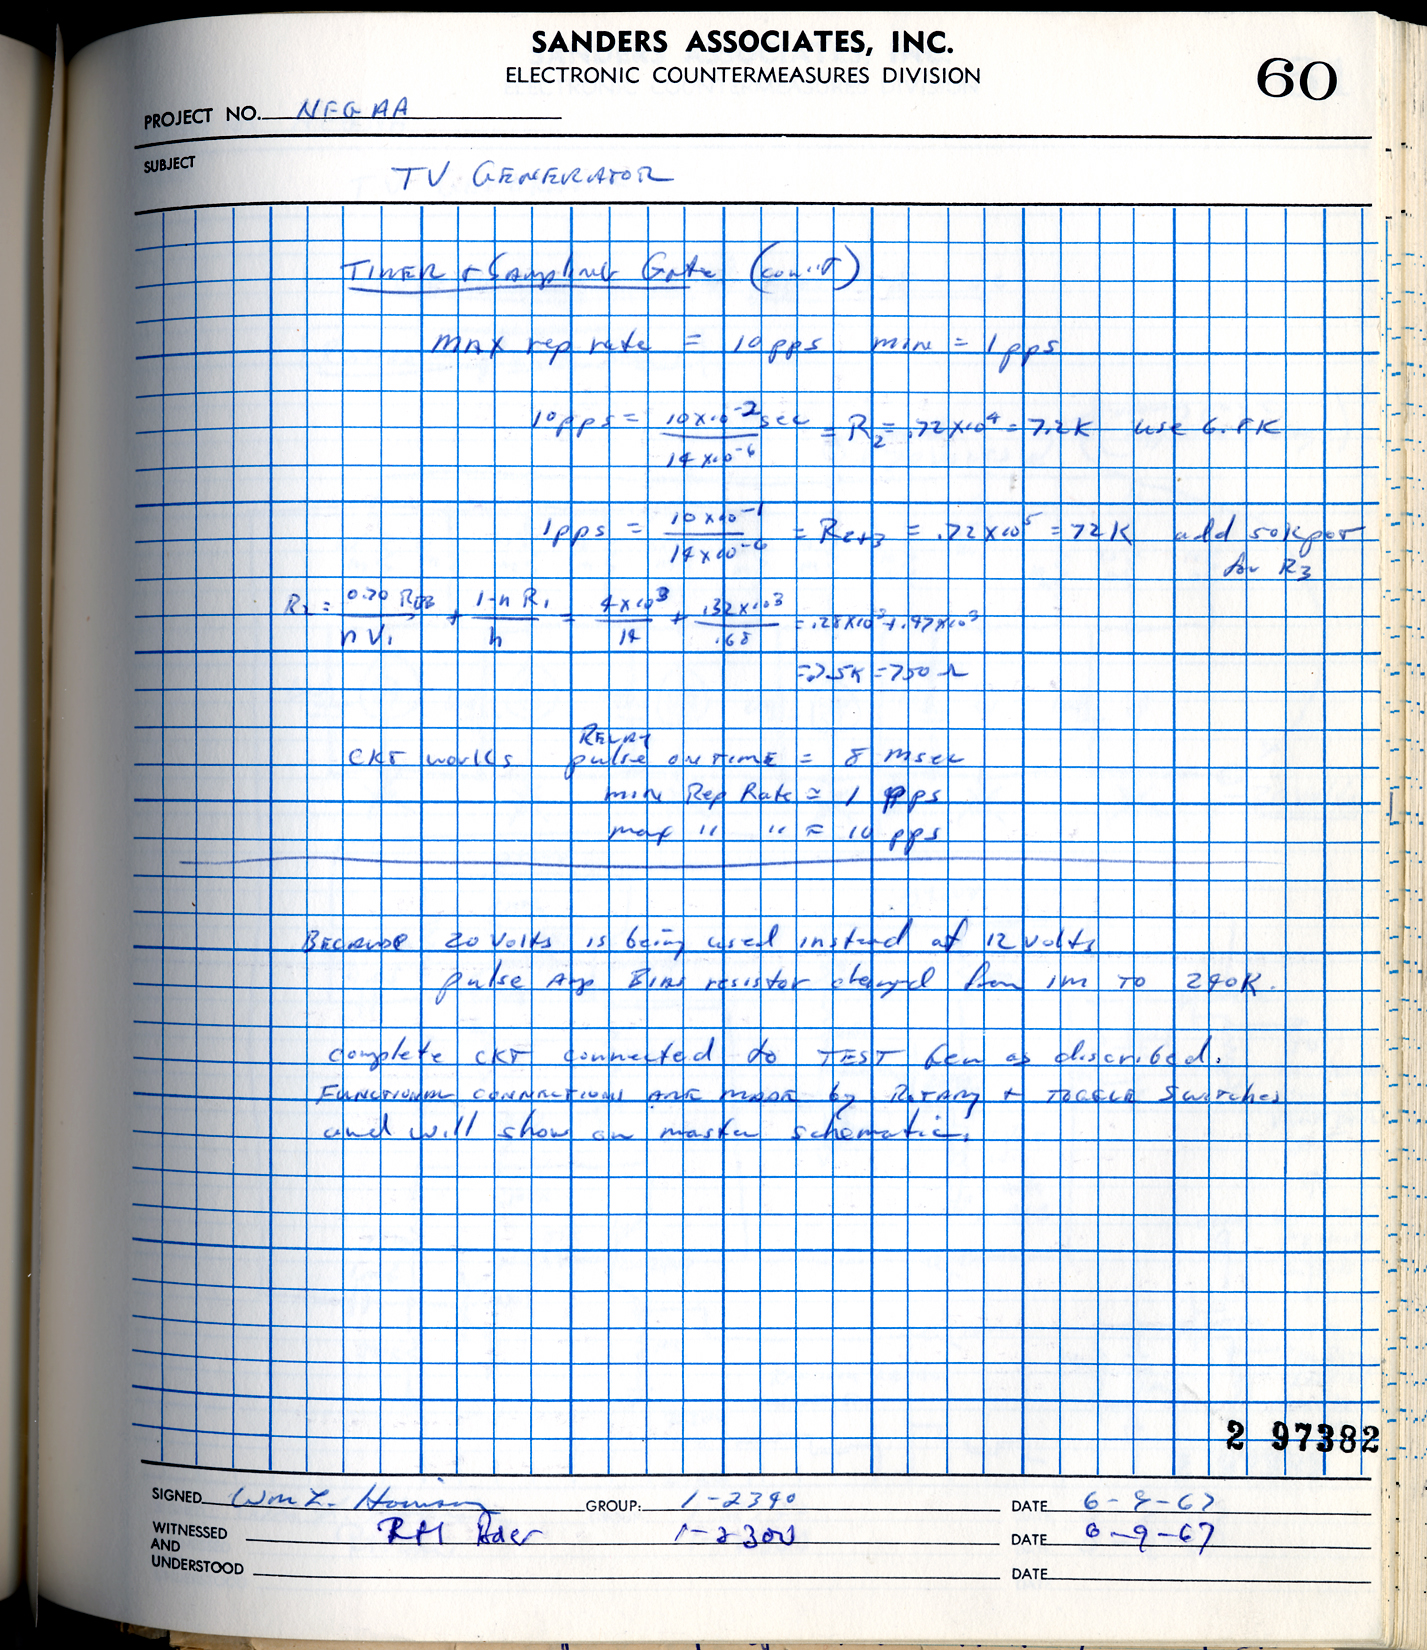 SANDERS ASSOCIATES, INC.
ELECTRONIC COUNTERMEASURES DIVISION
60
PROJECT NO. NEGAA
SUBJECT
TV GENERATOR
TIMER + Sampling Gate (con't)
MAX rep rate = 10pps min = 1pps
10pps = 10x10⁻² sec / 14x10⁻⁶ = R₂ = .72x10⁴ = 7.2K use 6.8K
1pps = 10x10⁻¹ / 14x10⁻⁶ = R₂₊₃ = .72x10⁵ = 72K add 50K pot
for R3
R₂ = 0.70 RBB / n V₁ + 1-n R₁ / n = 4x10³ / 14 + .32x10³ / .68 = .28x10³ + .47x10³
= .75K = 750 Ω
RELAY
CKT works pulse on TIME = 8 msec
min Rep Rate ≈ 1 pps
max " " ≈ 10 pps
BECAUSE 20 volts is being used instead of 12 volts
pulse Amp BIAS resistor changed from 1M TO 240K.
complete CKT connected to TEST Gen as discribed.
FUNCTIONAL CONNECTIONS ARE MADE by ROTARY + TOGGLE Switches
and will show on master schematic.
2 97382
SIGNED Wm L. Harrison GROUP: 1-2390 DATE 6-9-67
WITNESSED RH Baer 1-2300 DATE 6-9-67
AND
UNDERSTOOD DATE